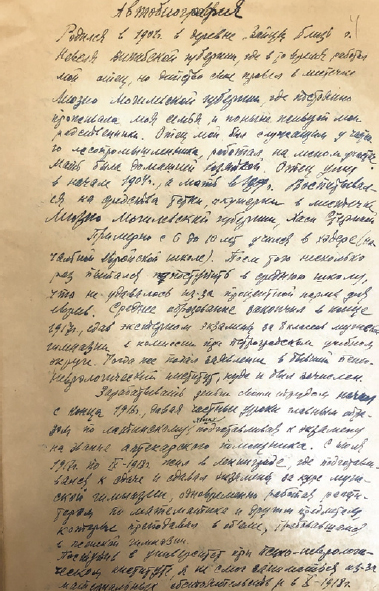 Автобиография
Родился в 190 г. в деревне Зайцы близ г.
Невеля Витебской губернии, где в то время работал
мой отец, но детство свое провел в местечке
Могилевской губернии, где постоянно
проживала моя семья, и поныне живут мои
родственники. Отец мой был служащим у
лесопромышленника, работал на лесном участке
Мать была домашней хозяйкой. Отец умер
в начале 1904 г., а мать в Воспитывал-
ся на средства тетки, акушерки в местечке
Могилевской губернии,
Примерно с 6 до 10 лет учился в хедере (на-
чальной еврейской школе). После того несколько
раз пытался поступить в среднюю школу,
что не удавалось из-за процентной нормы для
евреев. Среднее образование закончил в конце
1917 г., сдав экстерном экзамены за 8 классов мужской
гимназии в комиссии при Петроградском учебном
округе. Тогда же подал заявление в бывший психо-
неврологический институт, куда и был зачислен.
Зарабатывать
с конца 191 г., давая частные уроки главным обра-
зом по латинскому языку подготавливая к экзамену
на звание аптекарского помощника. С
191 до 191 г. жил в Ленинграде, где подготавли-
вался к сдаче и сдавал экзамены за курс муж-
ской гимназии, одновременно работая репети-
тором по математике и другим предметам
которые преподавал в объеме, требовавшемся
в женской гимназии.
Поступив в университет при психо-невроло-
гическом институте, я не смог заниматься из-за
материальных обстоятельств и в 1918 г.